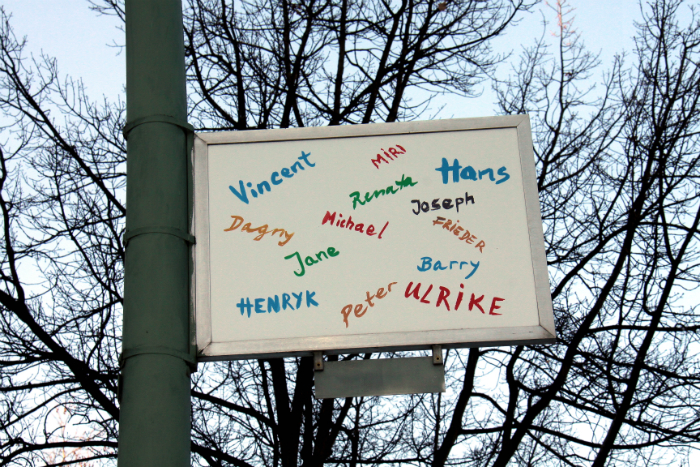 Vincent
MIRI
Hans
Renata
Joseph
Dagny
Michael
FRIEDER
Jane
Barry
HENRYK
Peter
ULRIKE